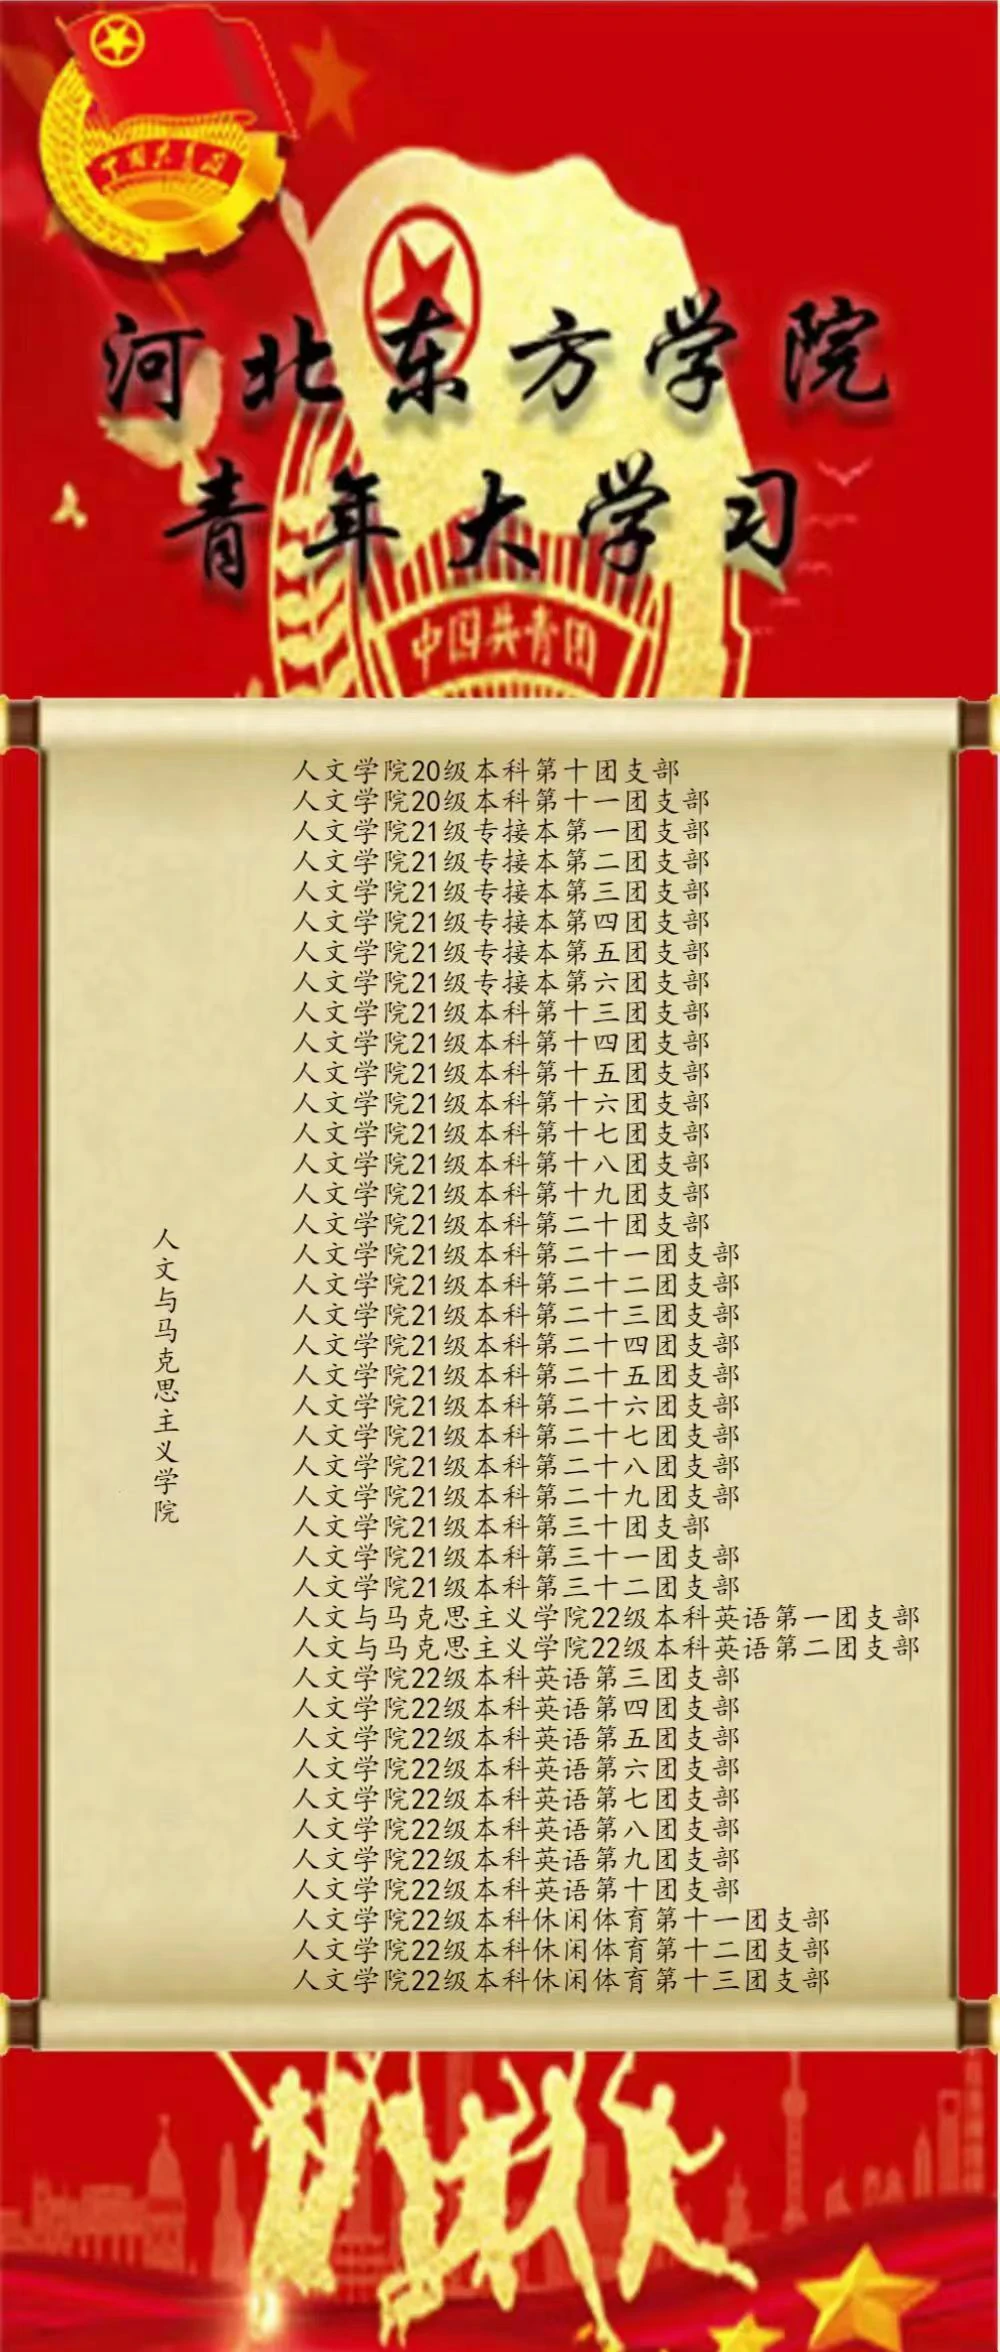 中国共青团
河北东方学院
青年大学习
中国共青团
人文与马克思主义学院
人文学院20级本科第十团支部
人文学院20级本科第十一团支部
人文学院21级专接本第一团支部
人文学院21级专接本第二团支部
人文学院21级专接本第三团支部
人文学院21级专接本第四团支部
人文学院21级专接本第五团支部
人文学院21级专接本第六团支部
人文学院21级本科第十三团支部
人文学院21级本科第十四团支部
人文学院21级本科第十五团支部
人文学院21级本科第十六团支部
人文学院21级本科第十七团支部
人文学院21级本科第十八团支部
人文学院21级本科第十九团支部
人文学院21级本科第二十团支部
人文学院21级本科第二十一团支部
人文学院21级本科第二十二团支部
人文学院21级本科第二十三团支部
人文学院21级本科第二十四团支部
人文学院21级本科第二十五团支部
人文学院21级本科第二十六团支部
人文学院21级本科第二十七团支部
人文学院21级本科第二十八团支部
人文学院21级本科第二十九团支部
人文学院21级本科第三十团支部
人文学院21级本科第三十一团支部
人文学院21级本科第三十二团支部
人文与马克思主义学院22级本科英语第一团支部
人文与马克思主义学院22级本科英语第二团支部
人文学院22级本科英语第三团支部
人文学院22级本科英语第四团支部
人文学院22级本科英语第五团支部
人文学院22级本科英语第六团支部
人文学院22级本科英语第七团支部
人文学院22级本科英语第八团支部
人文学院22级本科英语第九团支部
人文学院22级本科英语第十团支部
人文学院22级本科休闲体育第十一团支部
人文学院22级本科休闲体育第十二团支部
人文学院22级本科休闲体育第十三团支部